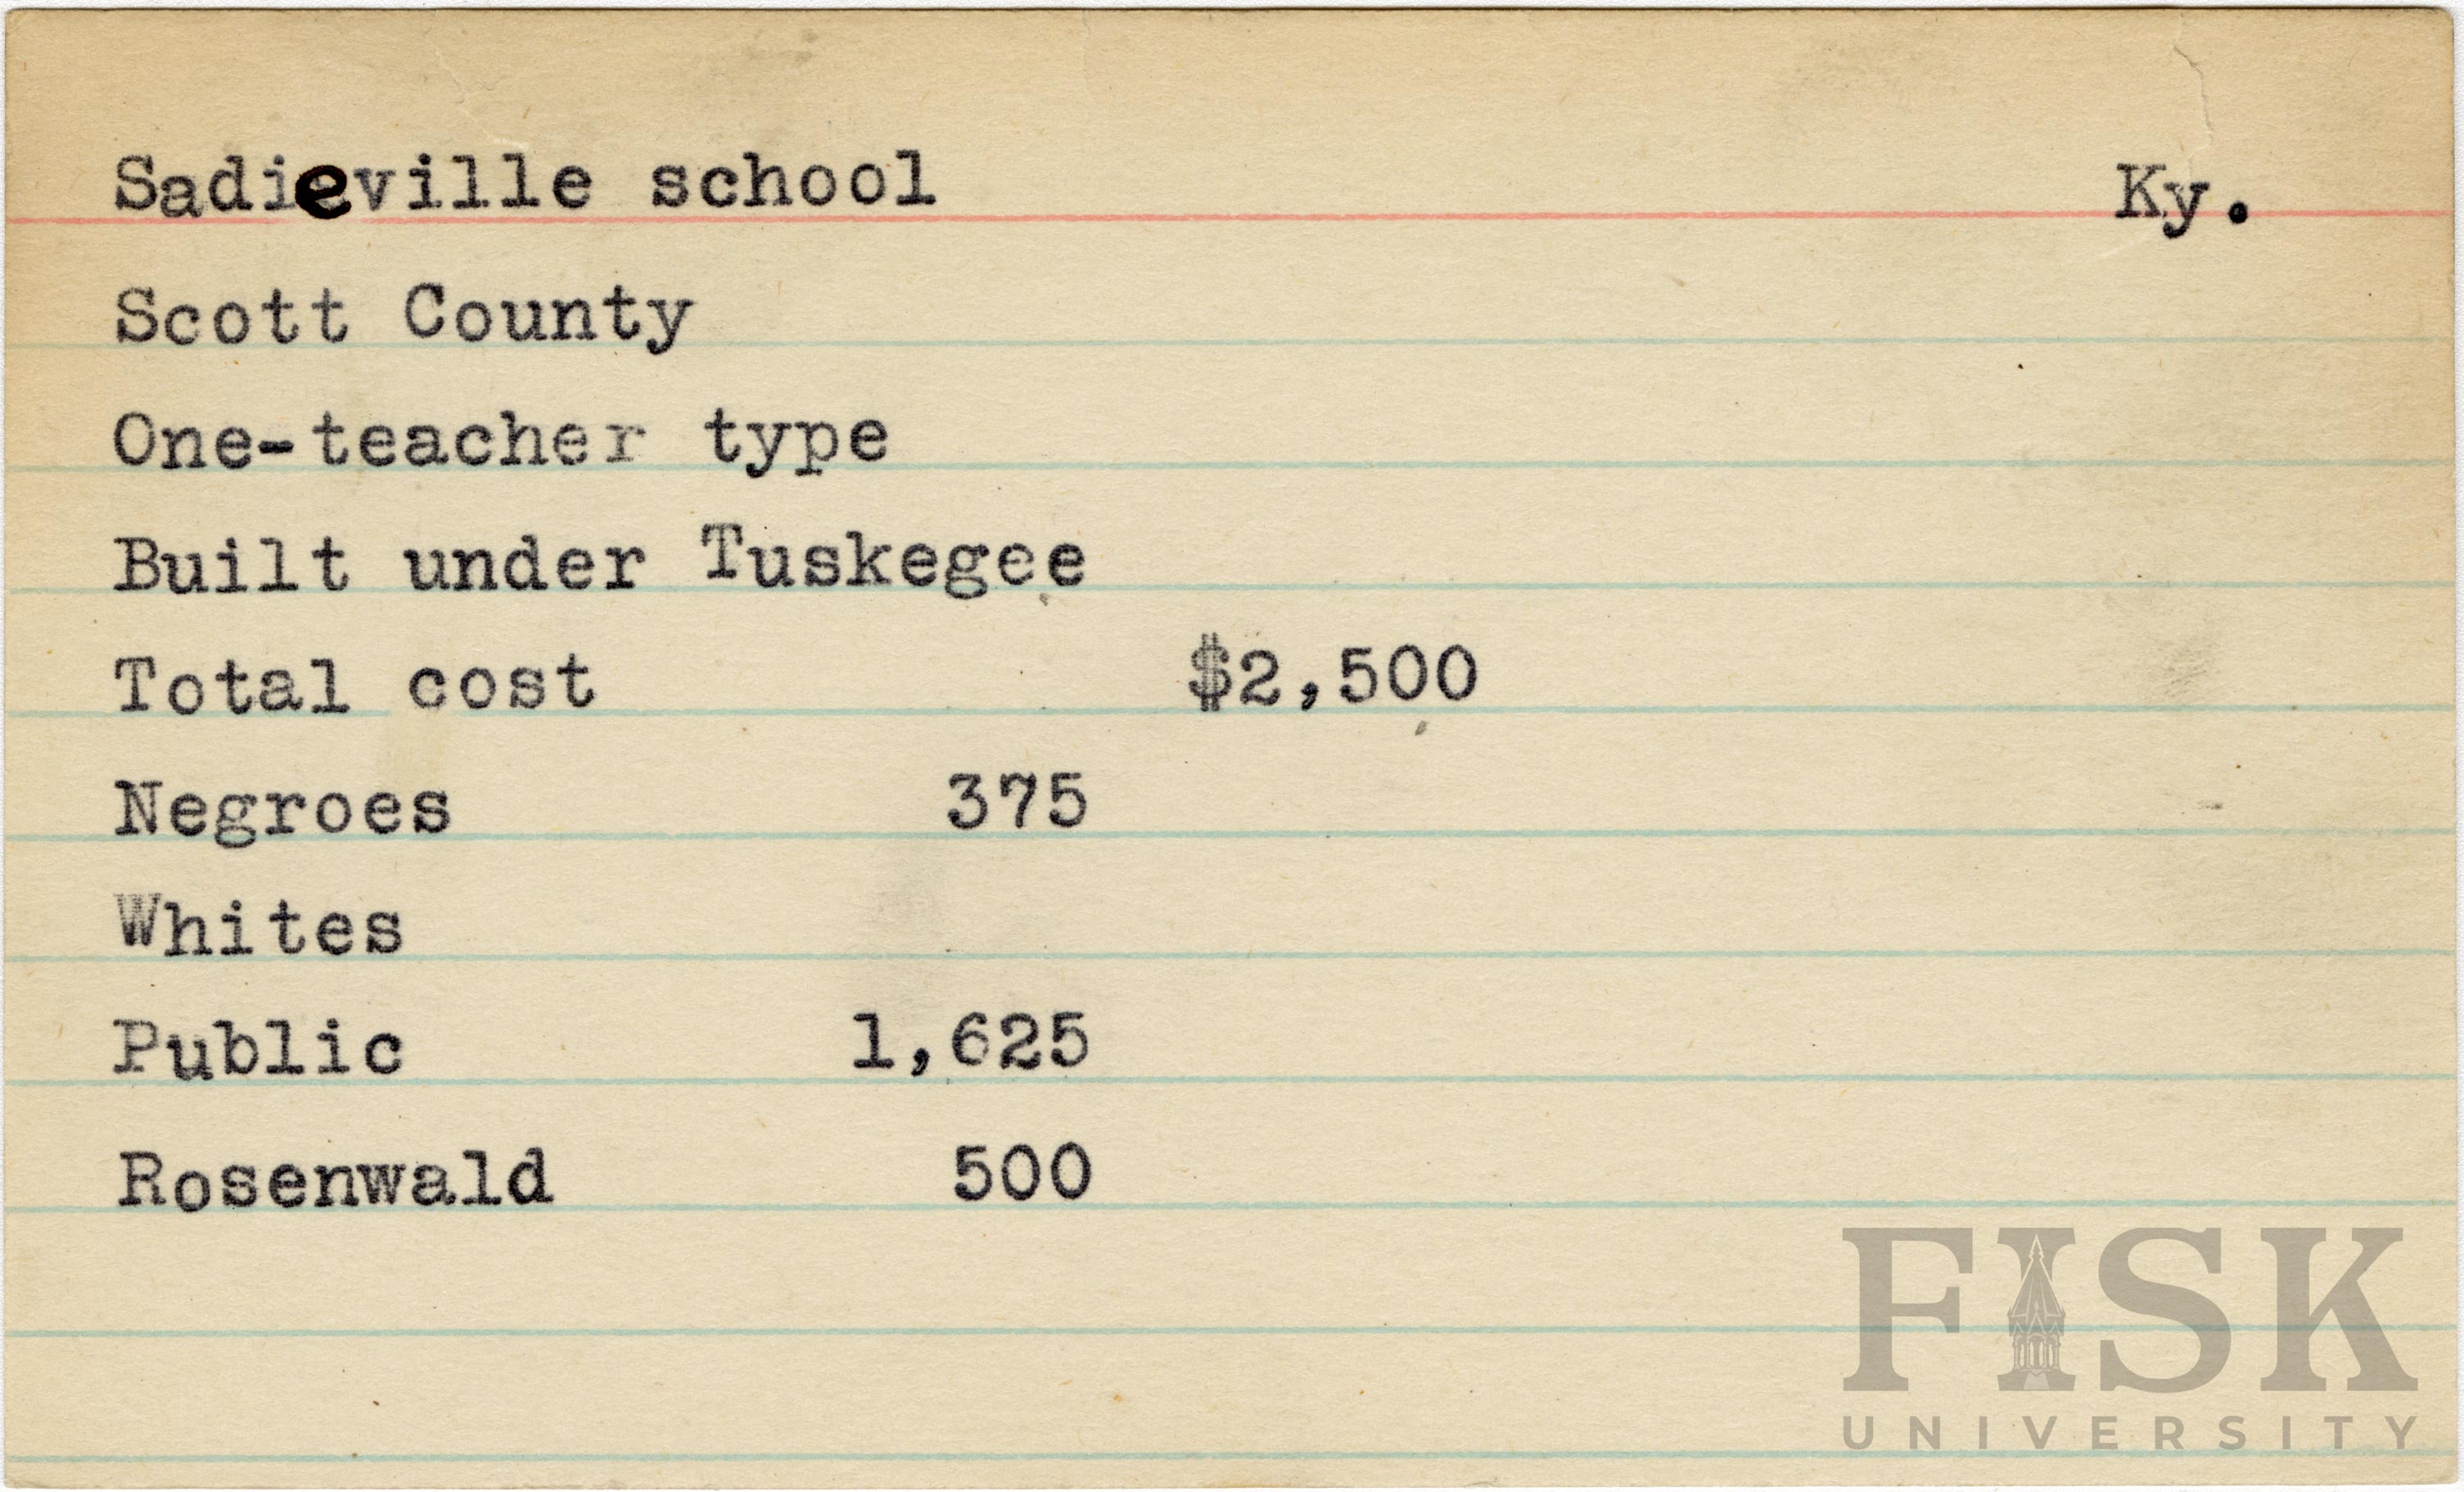 Sadieville school Ky.
Scott County
One-teacher type
Built under Tuskegee
Total cost $2,500
Negroes 375
Whites
Public 1,625
Rosenwald 500
FISK
UNIVERSITY